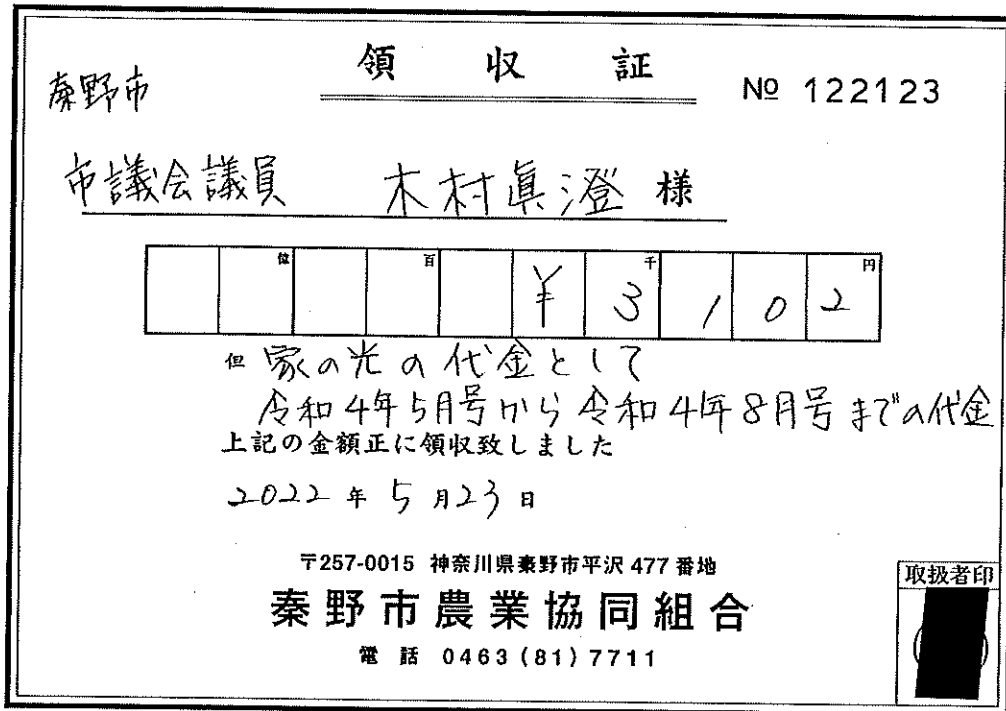 領収証
№ 122123
秦野市
市議会議員 木村眞澄 様
億 百 千 円
¥3102
但 家の光の代金として
令和4年5月号から令和4年8月号までの代金
上記の金額正に領収致しました
2022年5月23日
〒257-0015 神奈川県秦野市平沢477番地
秦野市農業協同組合
電話 0463(81)7711
取扱者印